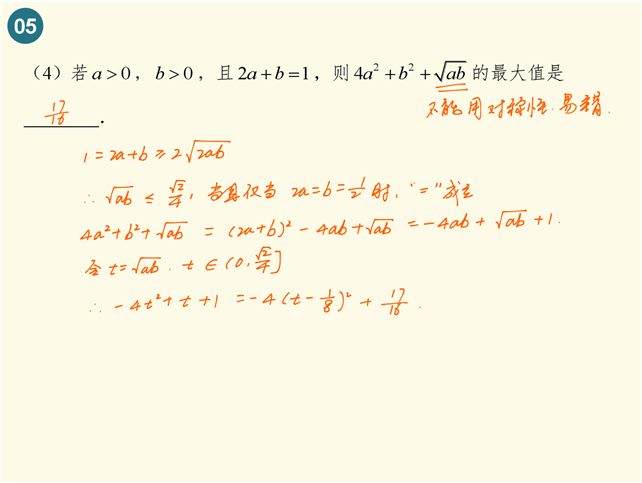 05
(4)若 a>0，b>0，且 2a+b=1，则 4a²+b²+√ab 的最大值是
17/16．
不能用对称性.易错.
1=2a+b≥2√2ab
∴ √ab ≤ √2/4，当且仅当 2a=b=1/2时，"="成立
4a²+b²+√ab = (2a+b)²-4ab+√ab = -4ab+√ab+1.
令t=√ab. t∈(0,√2/4]
∴ -4t²+t+1 = -4(t-1/8)²+17/16.